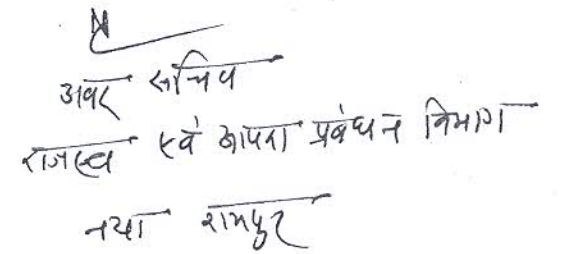 अवर सचिव
राजस्व एवं आपदा प्रबंधन विभाग
नया रायपुर